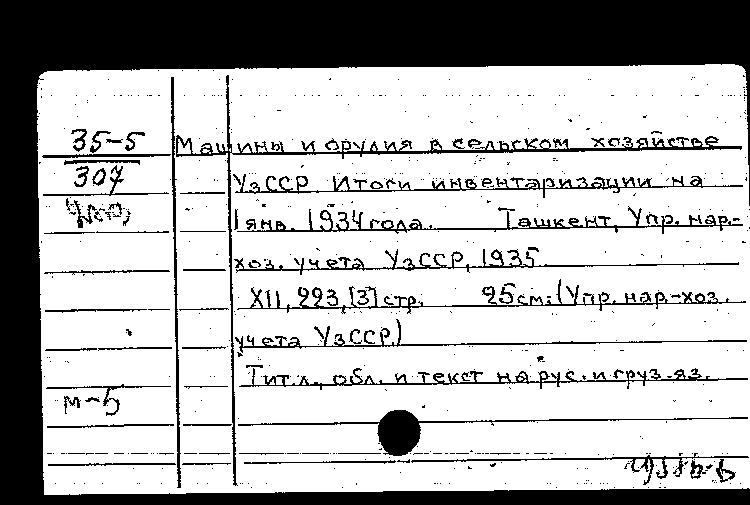 35-5 Машины и орудия в сельском хозяйстве
307 УзССР Итоги инвентаризации на
1 янв. 1934 года. Ташкент, Упр. нар.-
хоз. учета УзССР, 1935
XII, 223, [3] стр. 25 см. (Упр. нар-хоз.
учета УзССР)
Тит. л., обл. и текст на рус. и груз. яз.
м-5